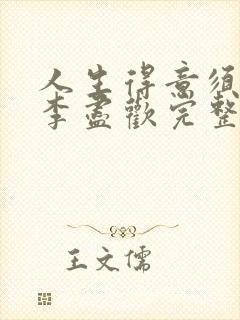 人生得意须
李盡歡完整
王文儒